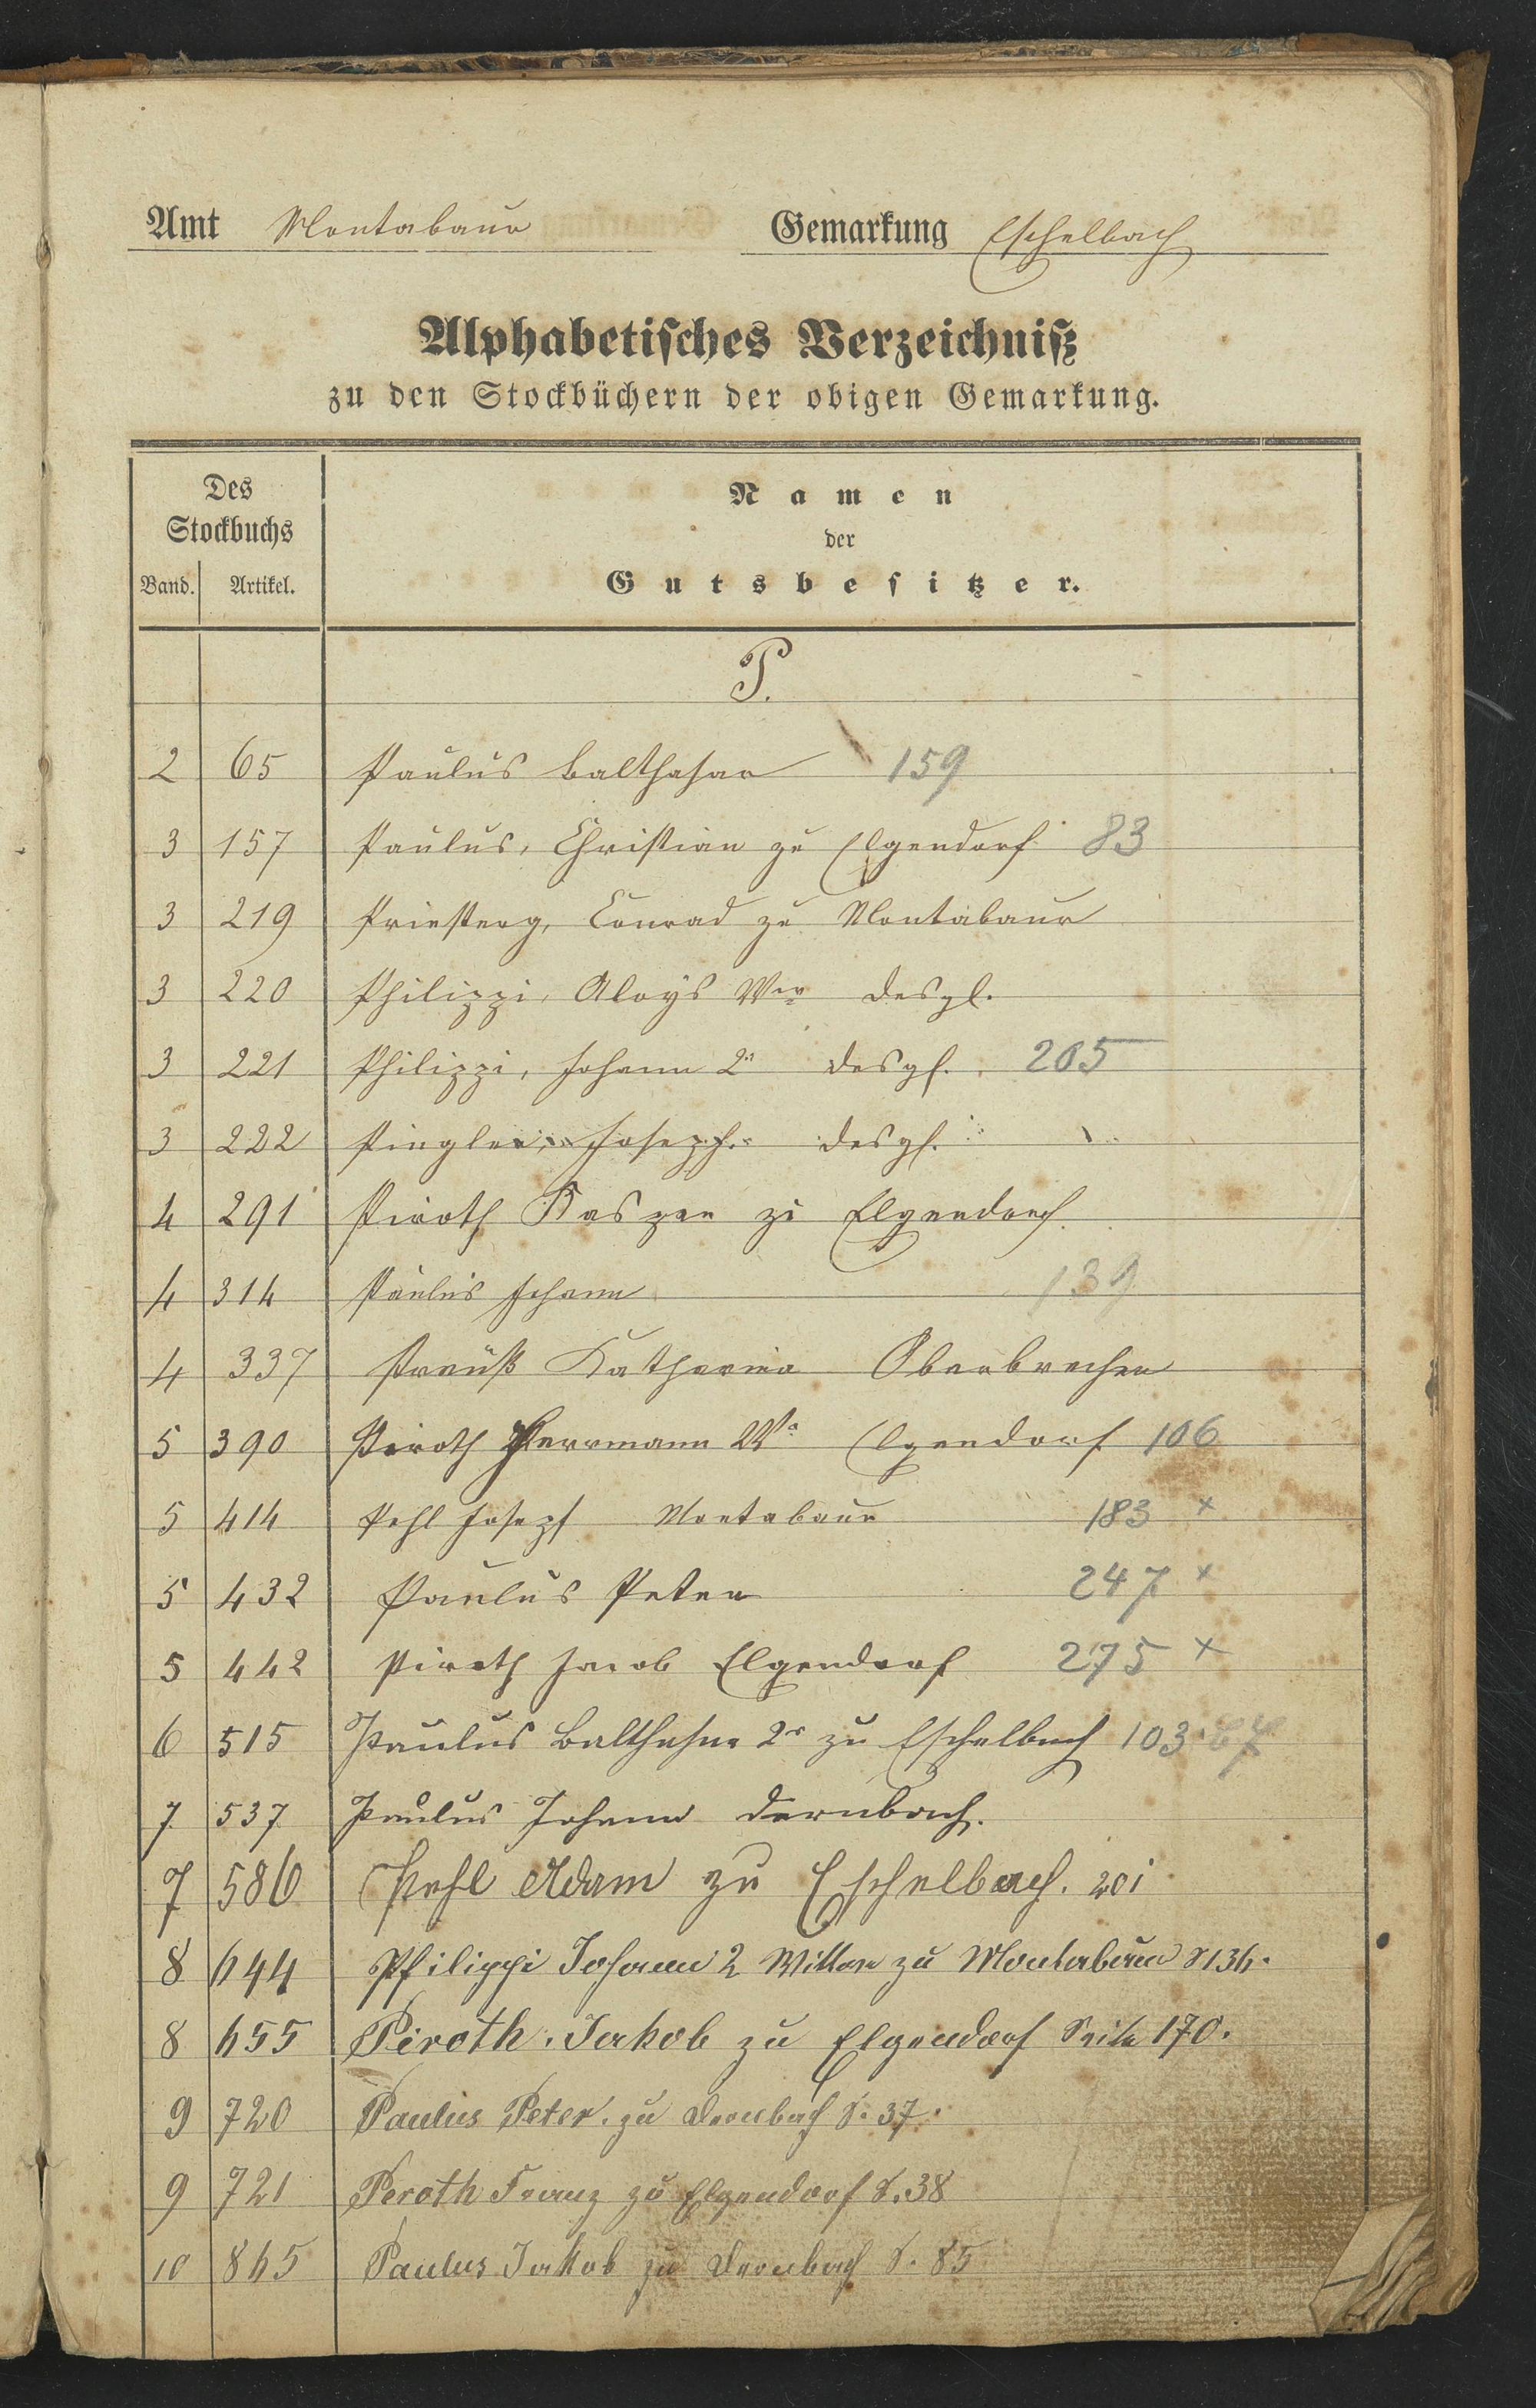 Amt Montabaur Gemarkung Eschelbach
Alphabetisches Verzeichniß
zu den Stockbüchern der obigen Gemarkung.
Des
Stockbuchs
Band. Artikel.
Namen
der
Gutsbesitzer.
P.
2 65 Paulus Balthasar 159
3 157 Paulus, Christian zu Elgendorf 83
3 219 Conrad zu Montabaur
3 220 Philippi, Aloys Wer desgl.
3 221 Philippi, Johann 2r desgl. 205
3 222 Pingler, Joseph desgl.
4 291 Piroth Kaspar zu Elgendorf
4 314 Paulus Johann 139
4 337 Preuß Katharina Oberbrechen
5 390 Piroth Herrmann Elgendorf 106
5 414 Pehl Joseph Montabaur 183 x
5 432 Paulus Peter 247 x
5 442 Piroth Jacob Elgendorf 275 x
6 515 Paulus Balthasar 2r zu Eschelbach 103
7 537 Paulus Johann Dernbach.
7 586 Pehl Adam zu Eschelbach. 201
8 644 Philippi Johann 2 Wittwe zu Montabaur S 136.
8 655 Piroth Jakob zu Elgendorf Seite 170.
9 720 Paulus Peter zu Dernbach S. 37.
9 721 Peroth Franz zu Elgendorf S. 38
10 865 Paulus Jakob zu Dernbach S. 85